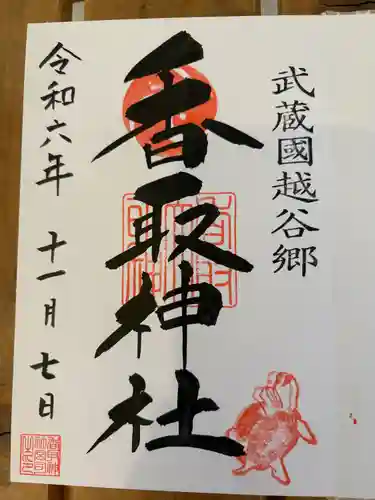 武蔵國越谷郷
香取神社
令和六年 十一月 七日